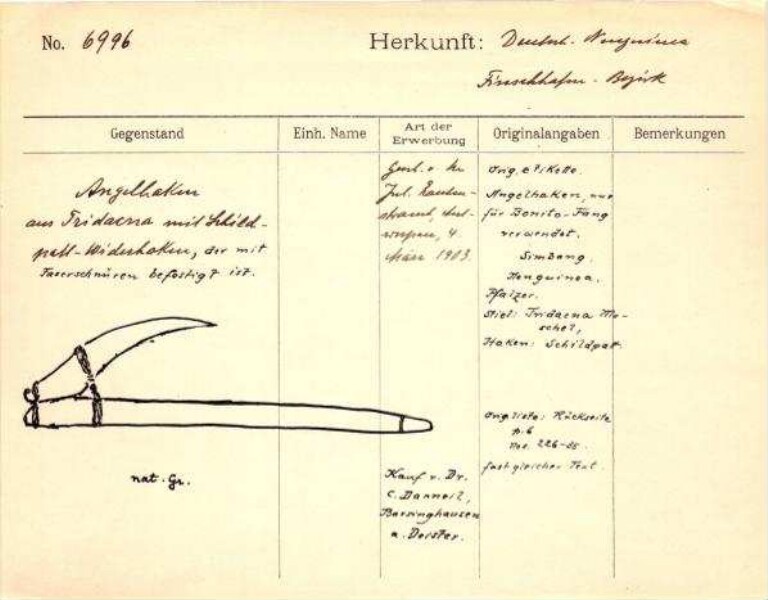 No. 6996
Herkunft: Deutsch. Neuguinea
Finschhafen-Bezirk
Gegenstand
Einh. Name
Art der
Erwerbung
Originalangaben
Bemerkungen
Angelhaken
aus Tridacna mit Schild-
patt-Widerhaken, der mit
Faserschnüren befestigt ist.
nat. Gr.
Gesch. v. Hr
Jul.
4.
März 1903.
Kauf v. Dr.
C. Danneil,
Barsinghausen
a. Deister.
Orig. etikette.
Angelhaken, nur
für Bonito-Fang
verwendet.
Simbang.
Neuguinea.
Pfalzer.
Stiel: Tridacna Mu-
schel,
Haken: Schildpatt.
Orig. liste: Rückseite
p. 6
Nos. 226-
fast gleicher Text.